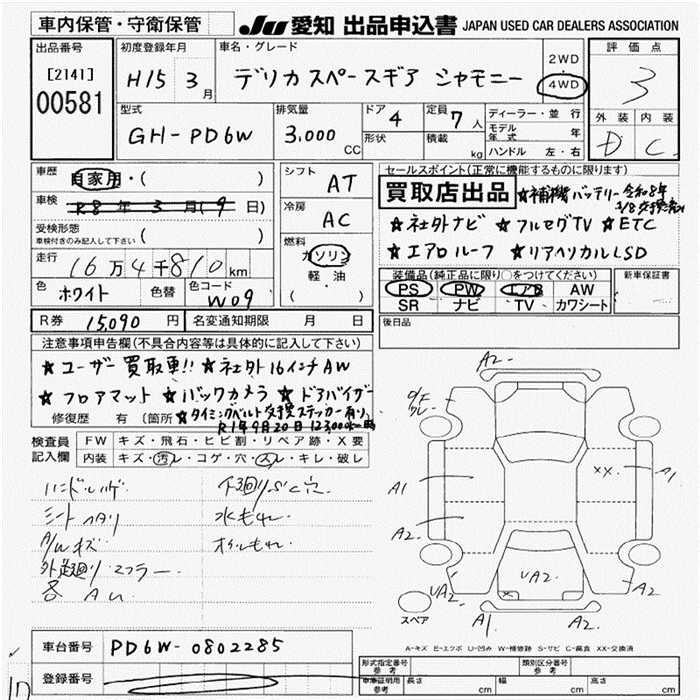 車内保管・守衛保管
JU 愛知 出品申込書 JAPAN USED CAR DEALERS ASSOCIATION
出品番号
[2141]
00581
初度登録年月
H15 3月
車名・グレード
デリカ スペースギア シャモニー
2WD
4WD
評価点
3
外装 内装
D C
型式
GH-PD6W
排気量
3,000 CC
ドア 4
形状
定員 7人
積載 kg
ディーラー・並行
モデル年式 年
ハンドル 左・右
車歴
自家用・( )
車検
R8年3月(9日)
受検形態
車検付きのみ記入して下さい ( )
走行
16万4千810km
色 ホワイト
色替
色コード W09
シフト
AT
冷房
AC
燃料
ガソリン
軽・油
( )
セールスポイント(正常に機能するものに限ります)
買取店出品
★補機バッテリー令和8年
3/8交換済み
★社外ナビ ★フルセグTV ★ETC
★エアロルーフ ★リアヘリカルLSD
装備品(純正品に限り○をつけてください)
PS PW エアB AW
SR ナビ TV カワシート
新車保証書
R券 15,090円
名変通知期限 月 日
後日品
注意事項申告欄(不具合内容等は具体的に記入して下さい)
★ユーザー買取車!! ★社外16インチAW
★フロアマット ★バックカメラ ★ドアバイザー
修復歴 有 (箇所
★タイミングベルト交換ステッカー有り
R1年9月20日 123,000km時
検査員記入欄
FW キズ・飛石・ヒビ割・リペア跡・X要
内装 キズ・汚レ・コゲ・穴・スレ・キレ・破レ
ハンドルハゲ
シートヘタリ
A/Wキズ
外廻り マフラー
各AU
下廻りSC穴
水もれ
オイルもれ
A2
A1
A2
XX
A1
UA2
VA2
A2
A1
A2
スペア
A-キズ E-エクボ U-凹み W-補修跡 S-サビ C-腐食 XX-交換済
車台番号
PD6W-0802285
登録番号
形式指定番号
参考
類別区分番号
参考
車庫証明用
参考
長さ cm
幅 cm
高さ cm